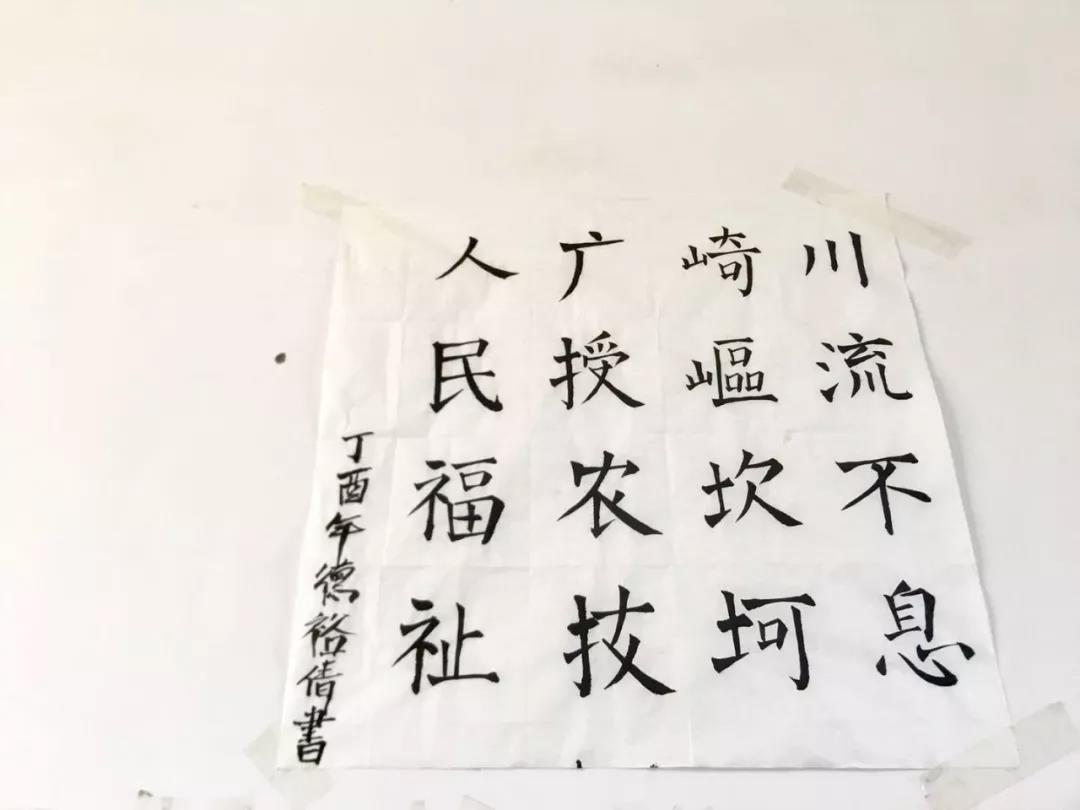 川流不息
崎岖坎坷
广授农技
人民福祉
丁酉年德裕倩書